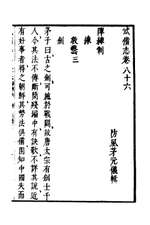 武備志卷八十六
防風茅元儀輯
陣練制
練
教藝三
劍
茅子曰古之劍可施於戰鬪故唐太宗有劍士千
人今其法不傳斷簡殘編中有訣歌不詳其說近
有好事者得之朝鮮其勢法俱備固知中國失而